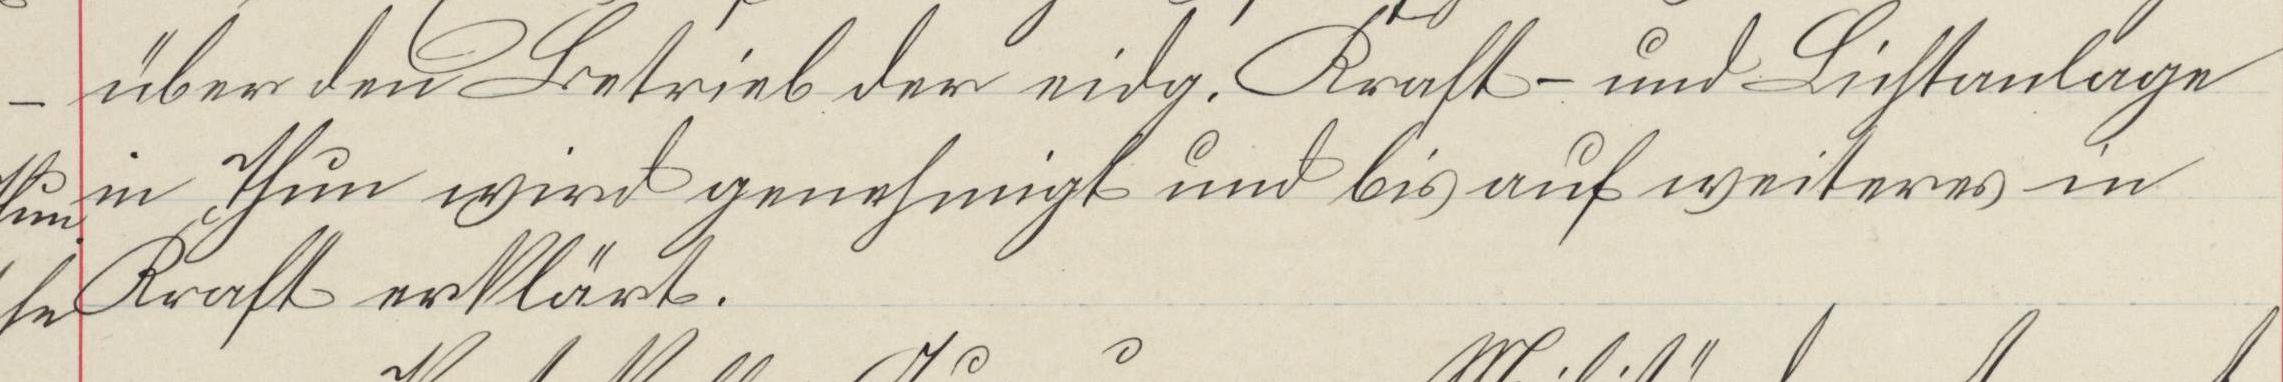 über den Betrieb der eidg. Kraft- und Lichtanlage
in Thun wird genehmigt und bis auf weiteres in
Kraft erklärt.